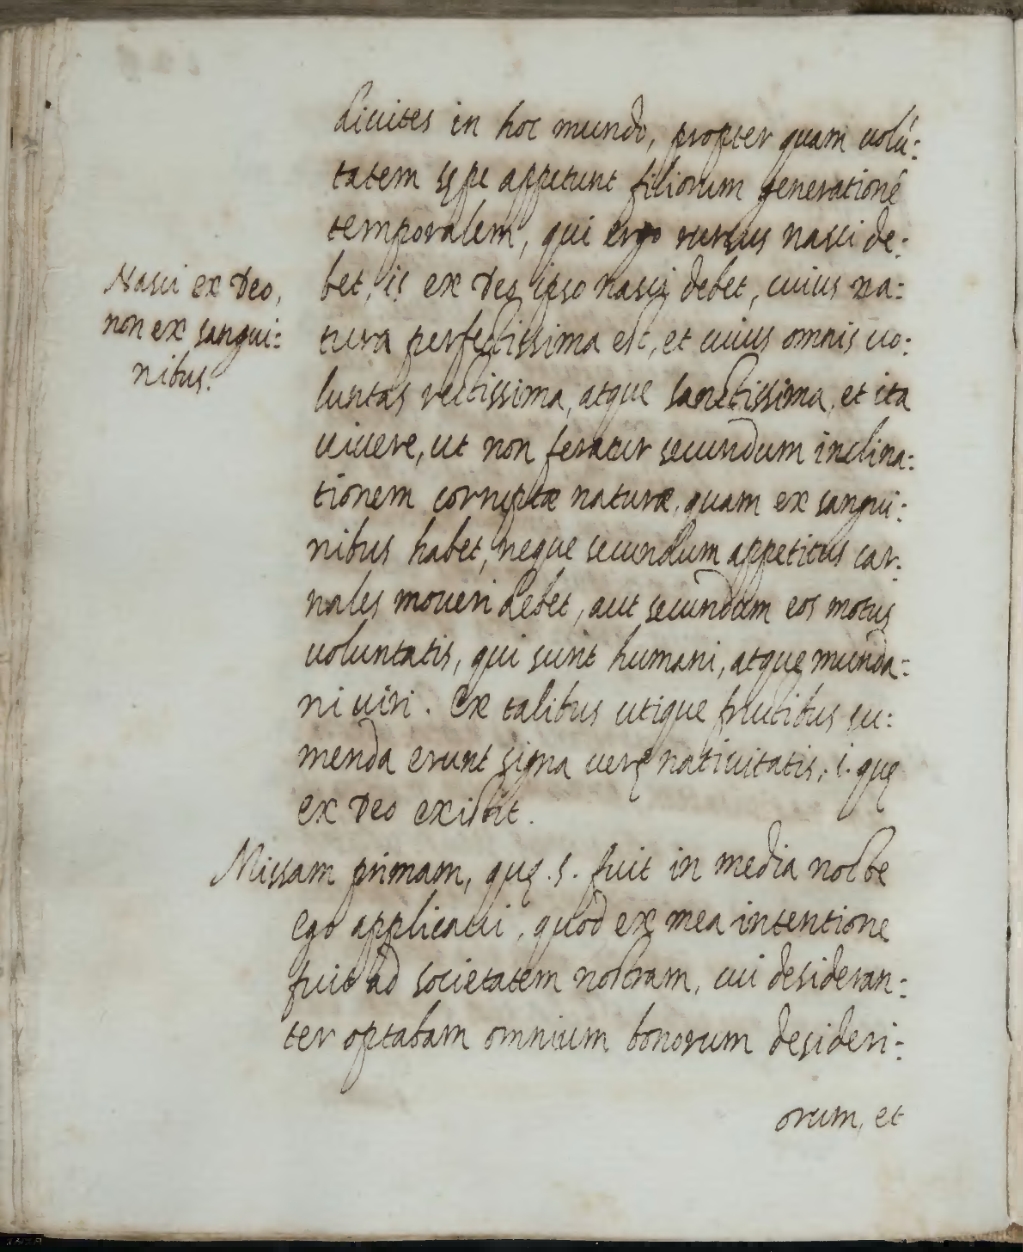 diuites in hoc mundo, propter quam volū-
tatem sępe appetunt filiorum generationē
temporalem, qui ergo rursus nasci de-
bet, is ex Deo ipso nasci debet, cuius na-
tura perfectissima est, et cuius omnis uo-
luntas rectissima, atque sanctissima, et ita
uiuere, ut non feratur secundum inclina-
tionem corruptæ naturæ, quam ex sangui-
nibus habet, neque secundum appetitus car-
nales moueri debet, aut secundum eos motus
uoluntatis, qui sunt humani, atque munda-
ni uiri. Ex talibus utique fructibus su-
menda erunt signa uerę natiuitatis, i. quę
ex Deo existit.
Nasci ex Deo,
non ex sangui-
nibus.
Missam primam, quę .s. fuit in media nocte
ego applicaui, quod ex mea intentione
fuit ad societatem nostram, cui desideran-
ter optabam omnium bonorum desideri-
orum, et